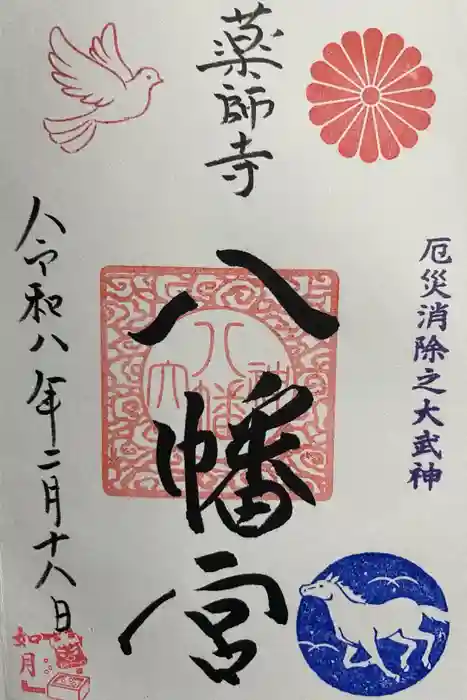 薬師寺
厄災消除之大武神
八幡宮
令和八年二月十八日
如月